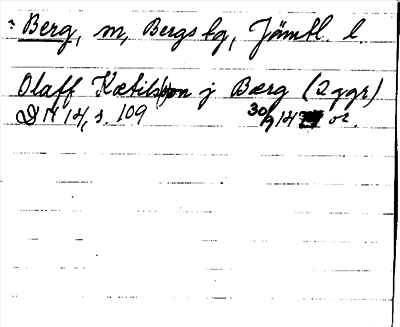 Berg, m, Bergs tg, Jämtl. l.
Olaff Kætilsson j Bærg (2 ggr)
DN 14, s. 109 30/9 14 or.